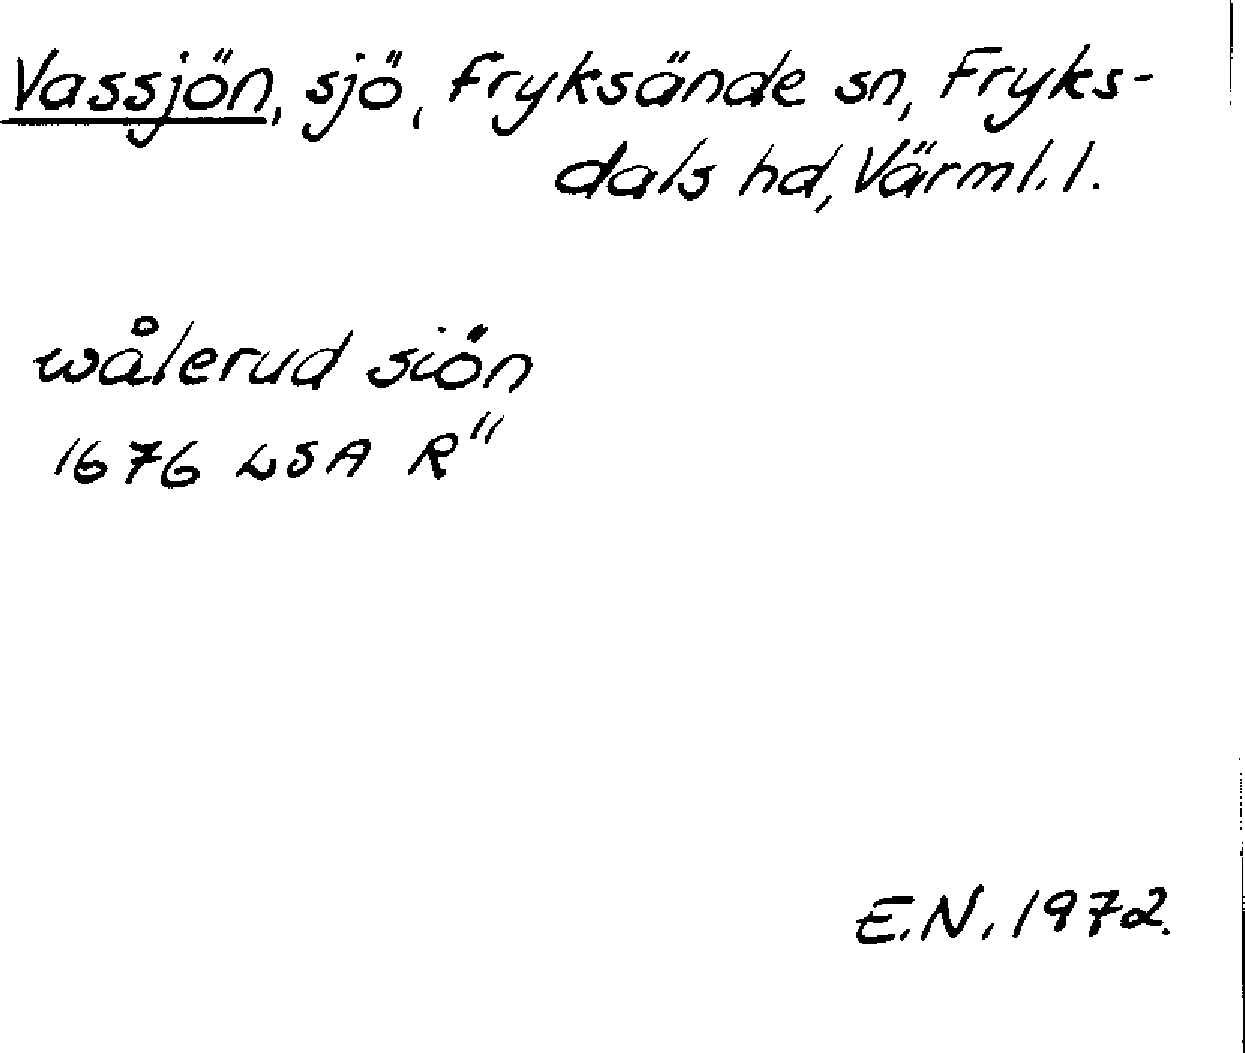 Vassjön, sjö, Fryksände sn, Fryks-
dals hd, Värml. l.
wålerud siön
1676 LSA R"
E.N. 1972.